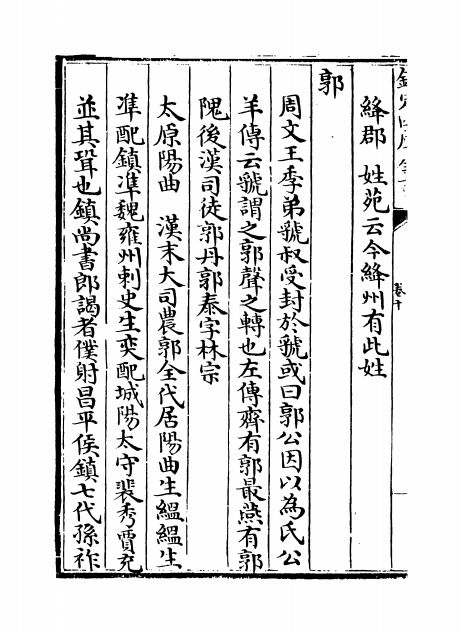 絳郡　姓苑云今絳州有此姓
郭
周文王季弟虢叔受封於虢或曰郭公因以為氏公
羊傳云虢謂之郭聲之轉也左傳齊有郭最燕有郭
隗後漢司徒郭丹郭泰字林宗
太原陽曲　漢末大司農郭全代居陽曲生緼緼生
準配鎮準魏雍州刺史生奕配城陽太守裴秀賈充
並其壻也鎮尚書郎謁者僕射昌平侯鎮七代孫祚
卷十